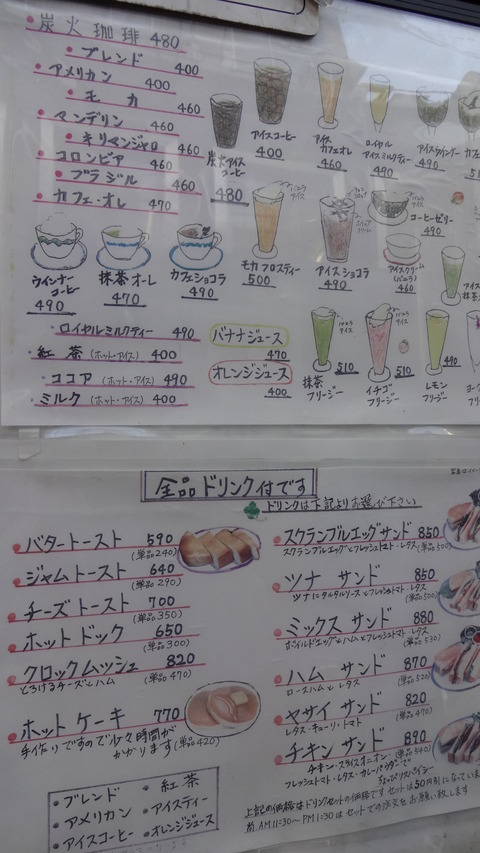 炭火珈琲 480
ブレンド 400
アメリカン 400
モカ 460
マンデリン 460
キリマンジャロ 460
コロンビア 460
ブラジル 460
カフェ・オレ 470
炭火アイスコーヒー
480
アイスコーヒー
400
アイス
カフェオレ
460
ロイヤル
アイスミルクティー
490
アイスウインナー
490
ウインナー
コーヒー
490
抹茶オーレ
470
カフェショコラ
490
バニラ
アイス
モカフロスティー
500
アイスショコラ
490
コーヒーゼリー
490
アイスクリーム
(バニラ)
460
ロイヤルミルクティー 490
紅茶(ホット・アイス) 400
ココア(ホット・アイス) 490
ミルク(ホット・アイス) 400
バナナジュース
470
オレンジジュース
400
バニラ
アイス
510
抹茶
フリージー
バニラ
アイス
510
イチゴ
フリージー
490
レモン
フリージー
全品ドリンク付です
ドリンクは下記よりお選び下さい
バタートースト 590
(単品240)
ジャムトースト 640
(単品290)
チーズトースト 700
(単品350)
ホットドック 650
(単品300)
クロックムッシュ 820
とろけるチーズとハム (単品470)
ホットケーキ 770
手作りですので少々時間が
かかります(単品420)
ブレンド
アメリカン
アイスコーヒー
紅茶
アイスティー
オレンジジュース
スクランブルエッグサンド 850
スクランブルエッグとフレッシュトマト・レタス (単品500)
ツナサンド 850
ツナにタルタルソースとフレッシュトマト・レタス (単品500)
ミックスサンド 880
ボイルドエッグとハムとフレッシュトマト・レタス (単品530)
ハムサンド 870
ロースハムとレタス (単品520)
ヤサイサンド 820
レタス・キューリ・トマト (単品470)
チキンサンド 890
チキン・スライスオニオン・(単品540)
フレッシュトマト・レタス・カレーパウダーで
ちょっぴりスパイシー
上記の価格はドリンクセットの価格です セットは50円引になっていま
尚 AM11:30〜PM1:30は セットでの注文をお願い致します